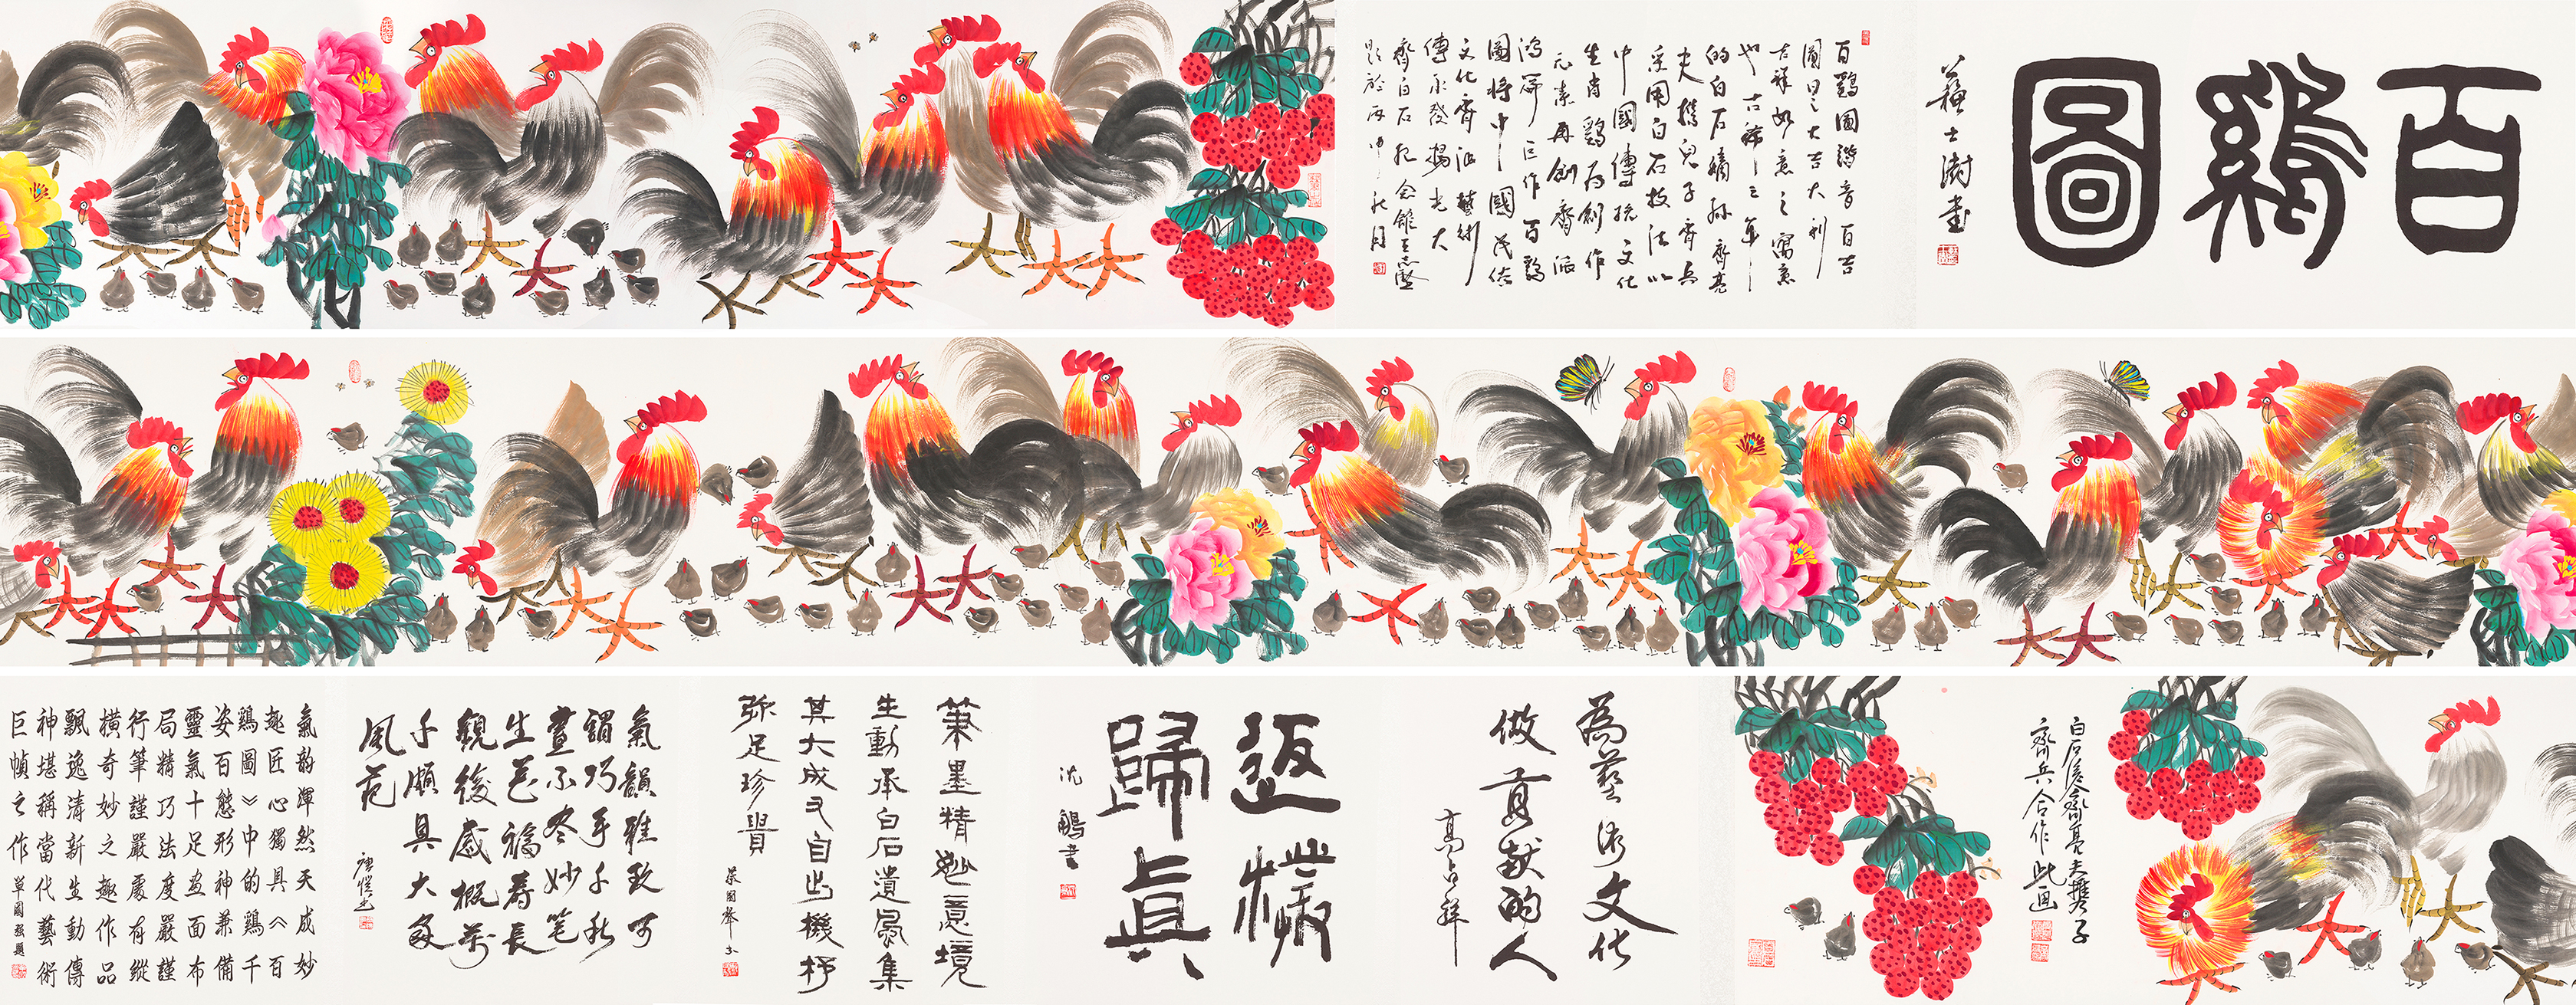 百鷄圖
蘇士澍書
百鷄圖諧音百吉
圖是大吉大利
吉祥如意之寓意
也古稀之年
的白石嫡孫齊亮
夫攜兒子齊兵
采用白石技法以
中國傳統文化
生肖鷄為創作
元素再創齊派
鴻篇巨作百鷄
圖將中國民俗
文化齊派藝術
傳承發揚光大
齊白石紀念館王志堅
題於丙申秋月
白石后裔齊亮夫攜子
齊兵合作此画
為藝術文化
做貢献的人
高占祥
返樸
歸眞
沈鵬書
筆墨精妙意境
生動承白石遺風集
其大成又自出機杼
弥足珍貴
蔡國聲書
氣韻雅致可
謂巧手千秋
畫不尽妙笔
生花福寿長
觀後感概萬
千頗具大家
風范
氣韵渾然天成妙
趣匠心獨具《百
鷄圖》中的鷄千
姿百態形神兼備
靈氣十足画面布
局精巧法度嚴謹
行筆謹嚴處有縱
橫奇妙之趣作品
飄逸清新生動傳
神堪稱當代藝術
巨幀之作 單國強題